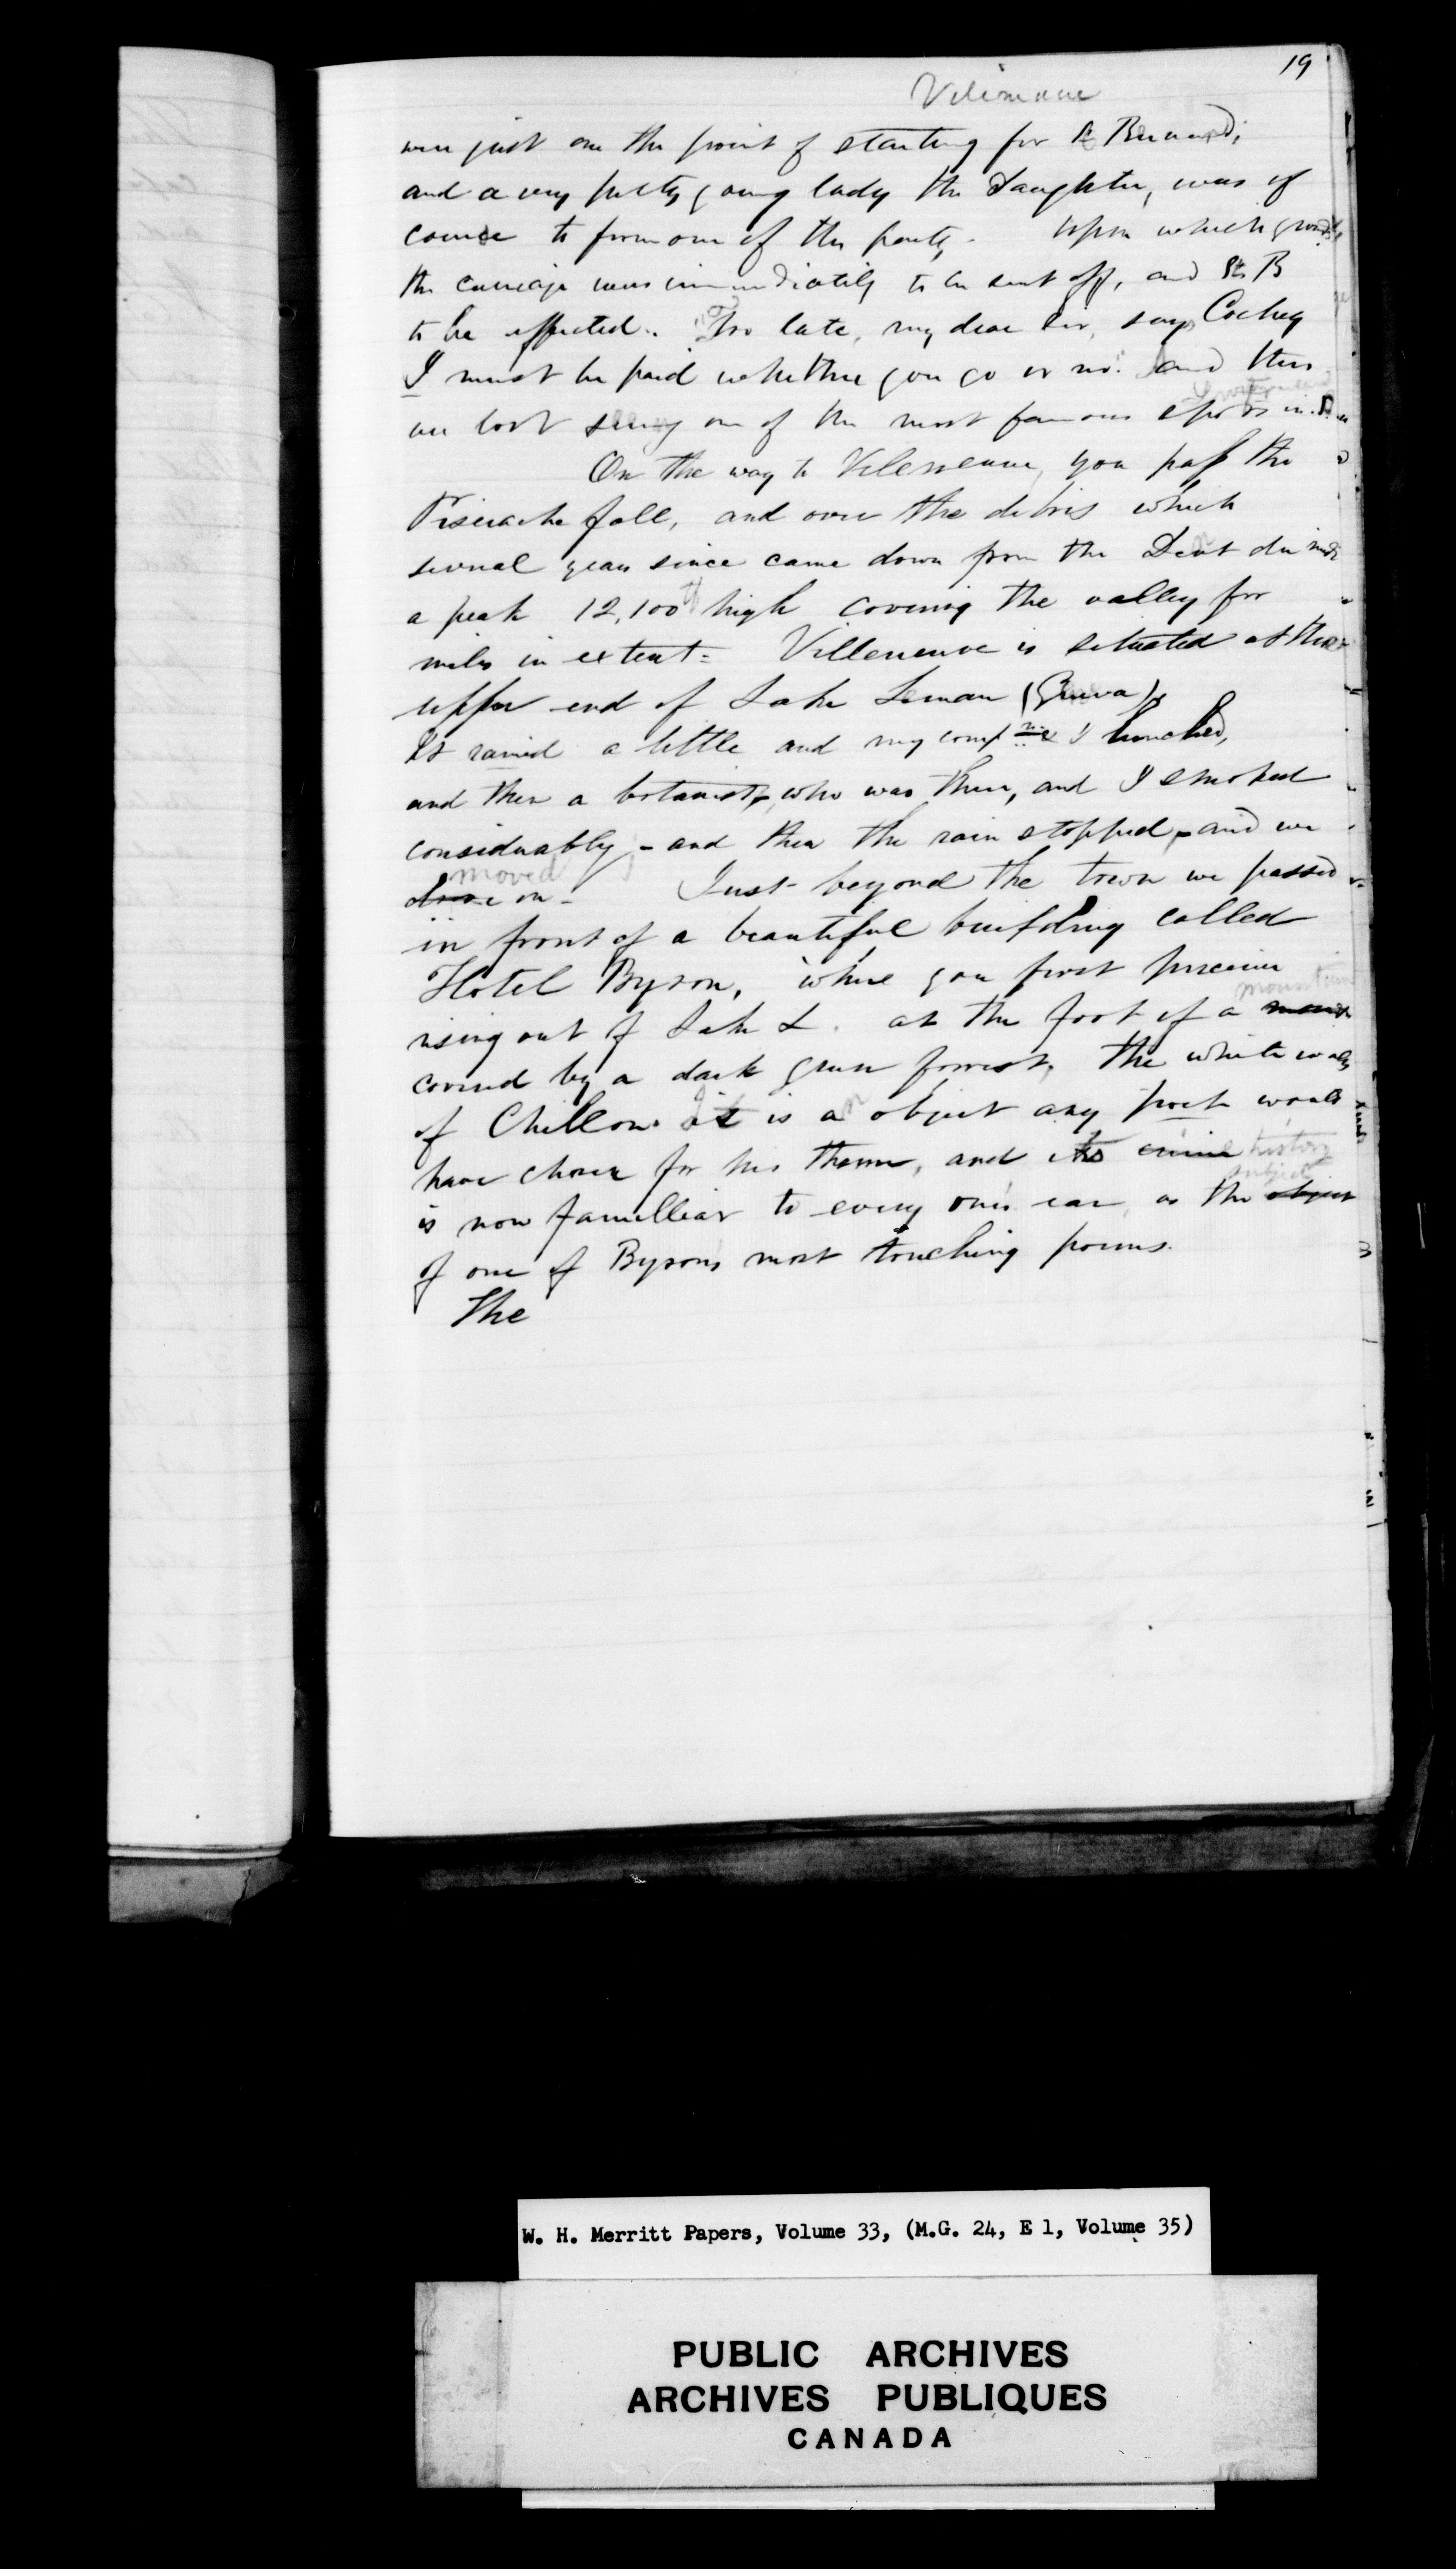 19
Vilineuve
were just on the point of starting for St Bernard;
and a very pretty young lady the daughter, was of
course to form one of the party. Upon which
the carriage was immediatily to be sent off, and St B
to be effected. "Too late, my dear sir, says Cochey
I must be paid whether you go or no." and thus
we lost seeing one of the most famous spots in
On the way to Villeneuve, you pass the
fall, and over the debris which
several years since came down from the Dent du midi
a peak 12,100 ft high covering the valley for
miles in extent = Villeneuve is situated at the
upper end of Lake Leman (Geneva).
It rained a little and my comp & I lunched,
and then a botanist, who was there, and I smoked
considerably - and then the rain stopped, and we
moved
drove on - Just beyond the town we passed
in front of a beautiful building called
Hotel Byron, where you first perceive
mountain
rising out of Lake L. at the foot of a
covered by a dark green forrest, the white walls
of Chillon. it is an object any poet would
have chosen for his theme, and its history
subject
is now familliar to every one's ear, as the object
of one of Byrons most touching poems.
The
W. H. Merritt Papers, Volume 33, (M.G. 24, E 1, Volume 35)
PUBLIC ARCHIVES
ARCHIVES PUBLIQUES
CANADA